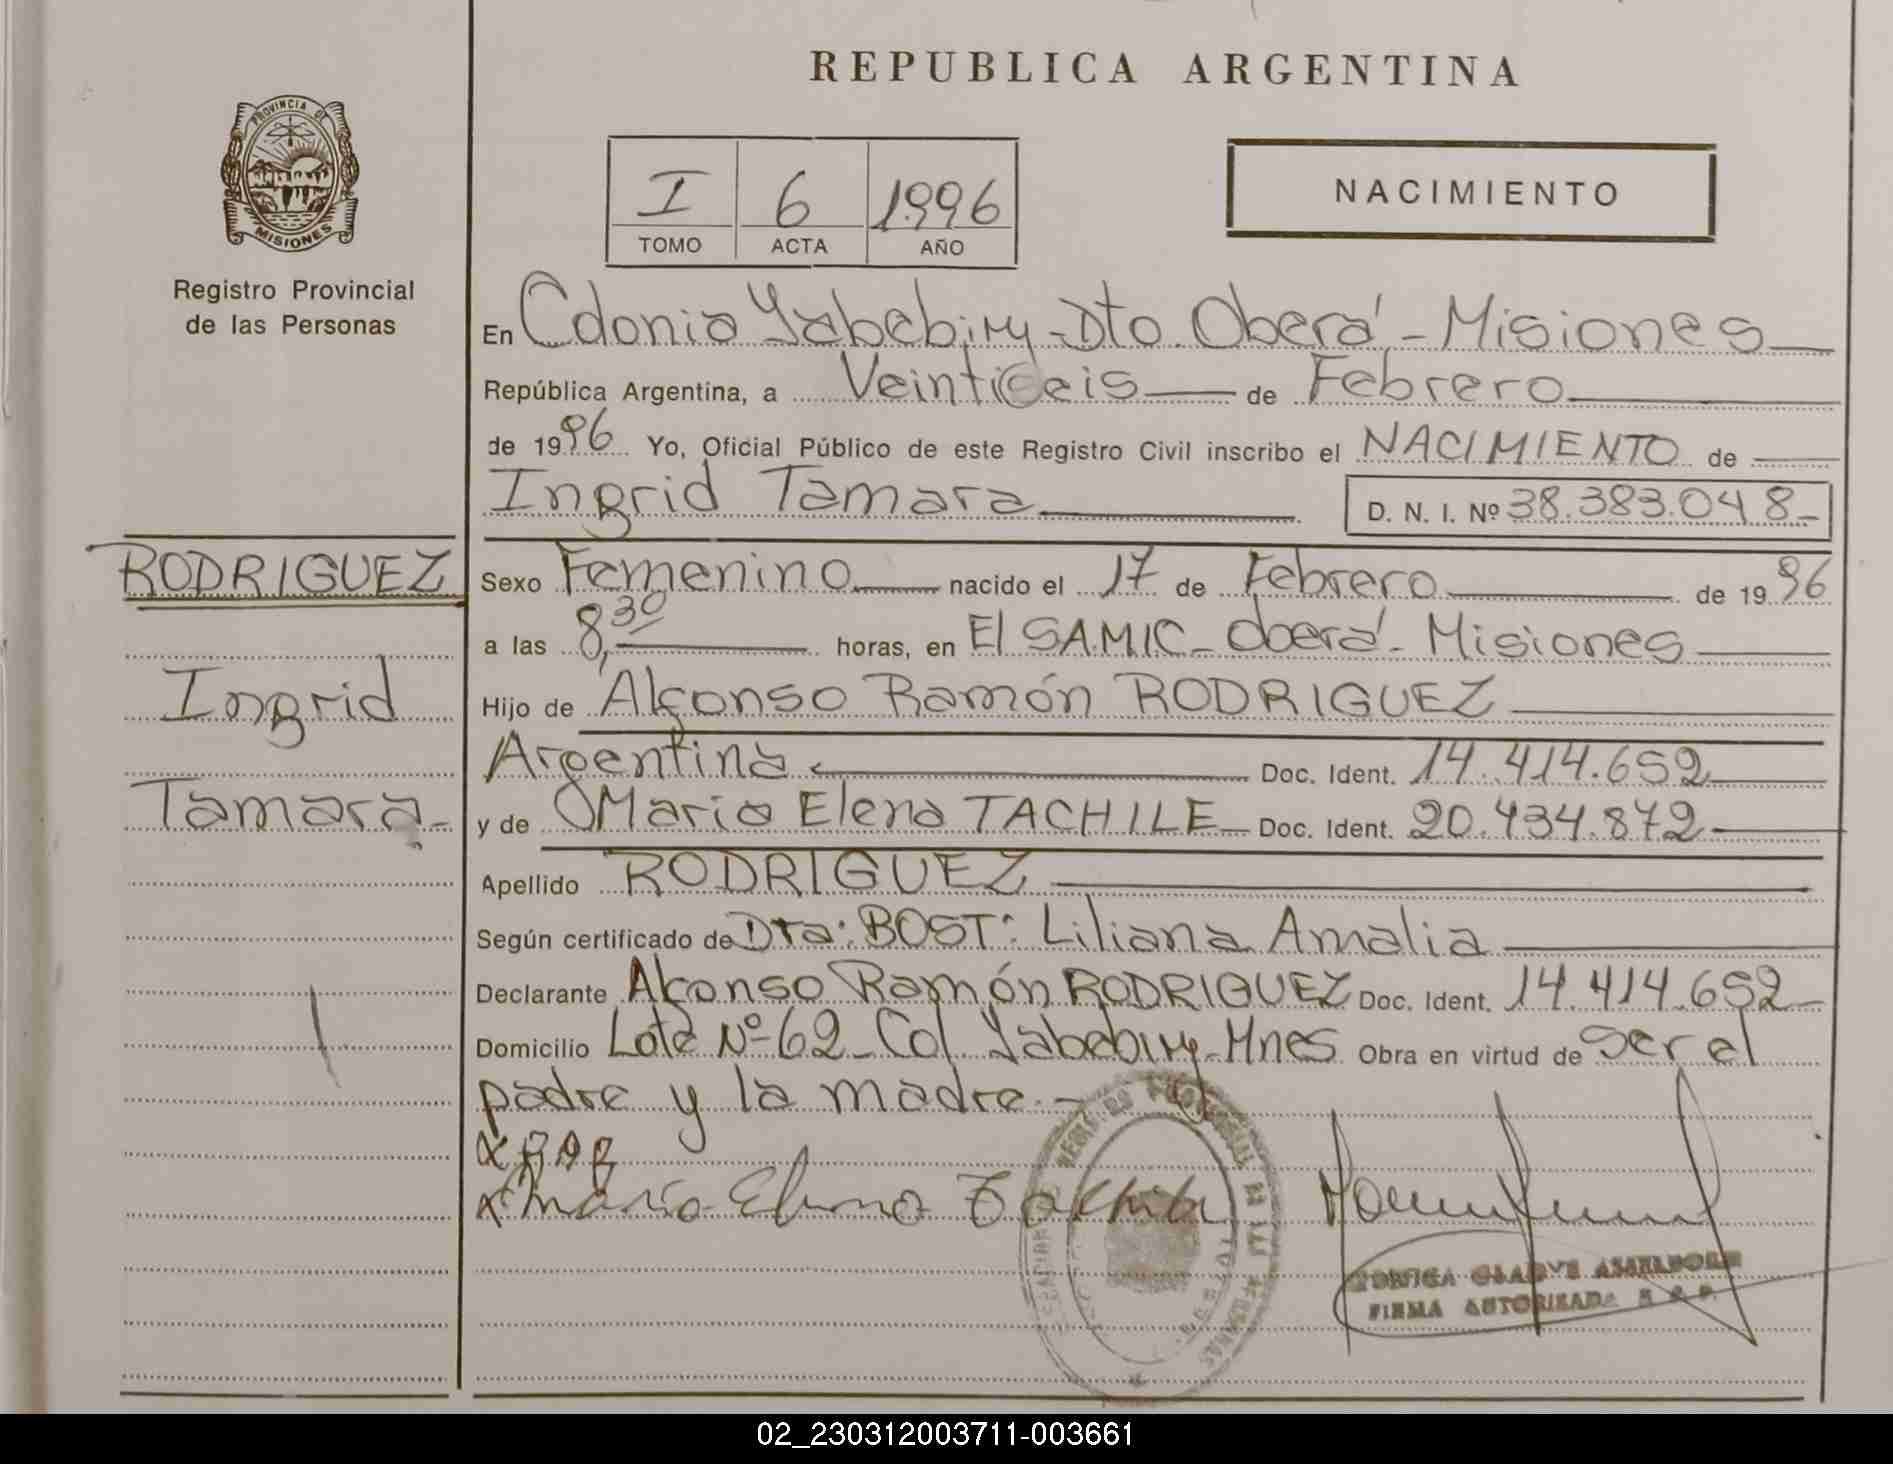 REPUBLICA ARGENTINA
PROVINCIA DE
MISIONES
Registro Provincial
de las Personas
I 6 1996
TOMO ACTA AÑO
NACIMIENTO
En Colonia Yabebiry - Dto. Oberá - Misiones
República Argentina, a Veintiseis de Febrero
de 1996 Yo, Oficial Público de este Registro Civil inscribo el NACIMIENTO de
Ingrid Tamara D. N. I. Nº 38.383.048-
RODRIGUEZ
Ingrid
Tamara-
Sexo Femenino nacido el 17 de Febrero de 1996
a las 8,30 horas, en El SAMIC - Oberá - Misiones
Hijo de Alfonso Ramón RODRIGUEZ
Argentina Doc. Ident. 14.414.652
y de María Elena TACHILE Doc. Ident. 20.434.872
Apellido RODRIGUEZ
Según certificado de Dra: BOST: Liliana Amalia
Declarante Alfonso Ramón RODRIGUEZ Doc. Ident. 14.414.652
Domicilio Lote Nº 62 - Col Yabebiry - Mnes Obra en virtud de ser el
padre y la madre.-
x RAR
x Maria Elena Tachile
FIRMA AUTORIZADA
02_230312003711-003661